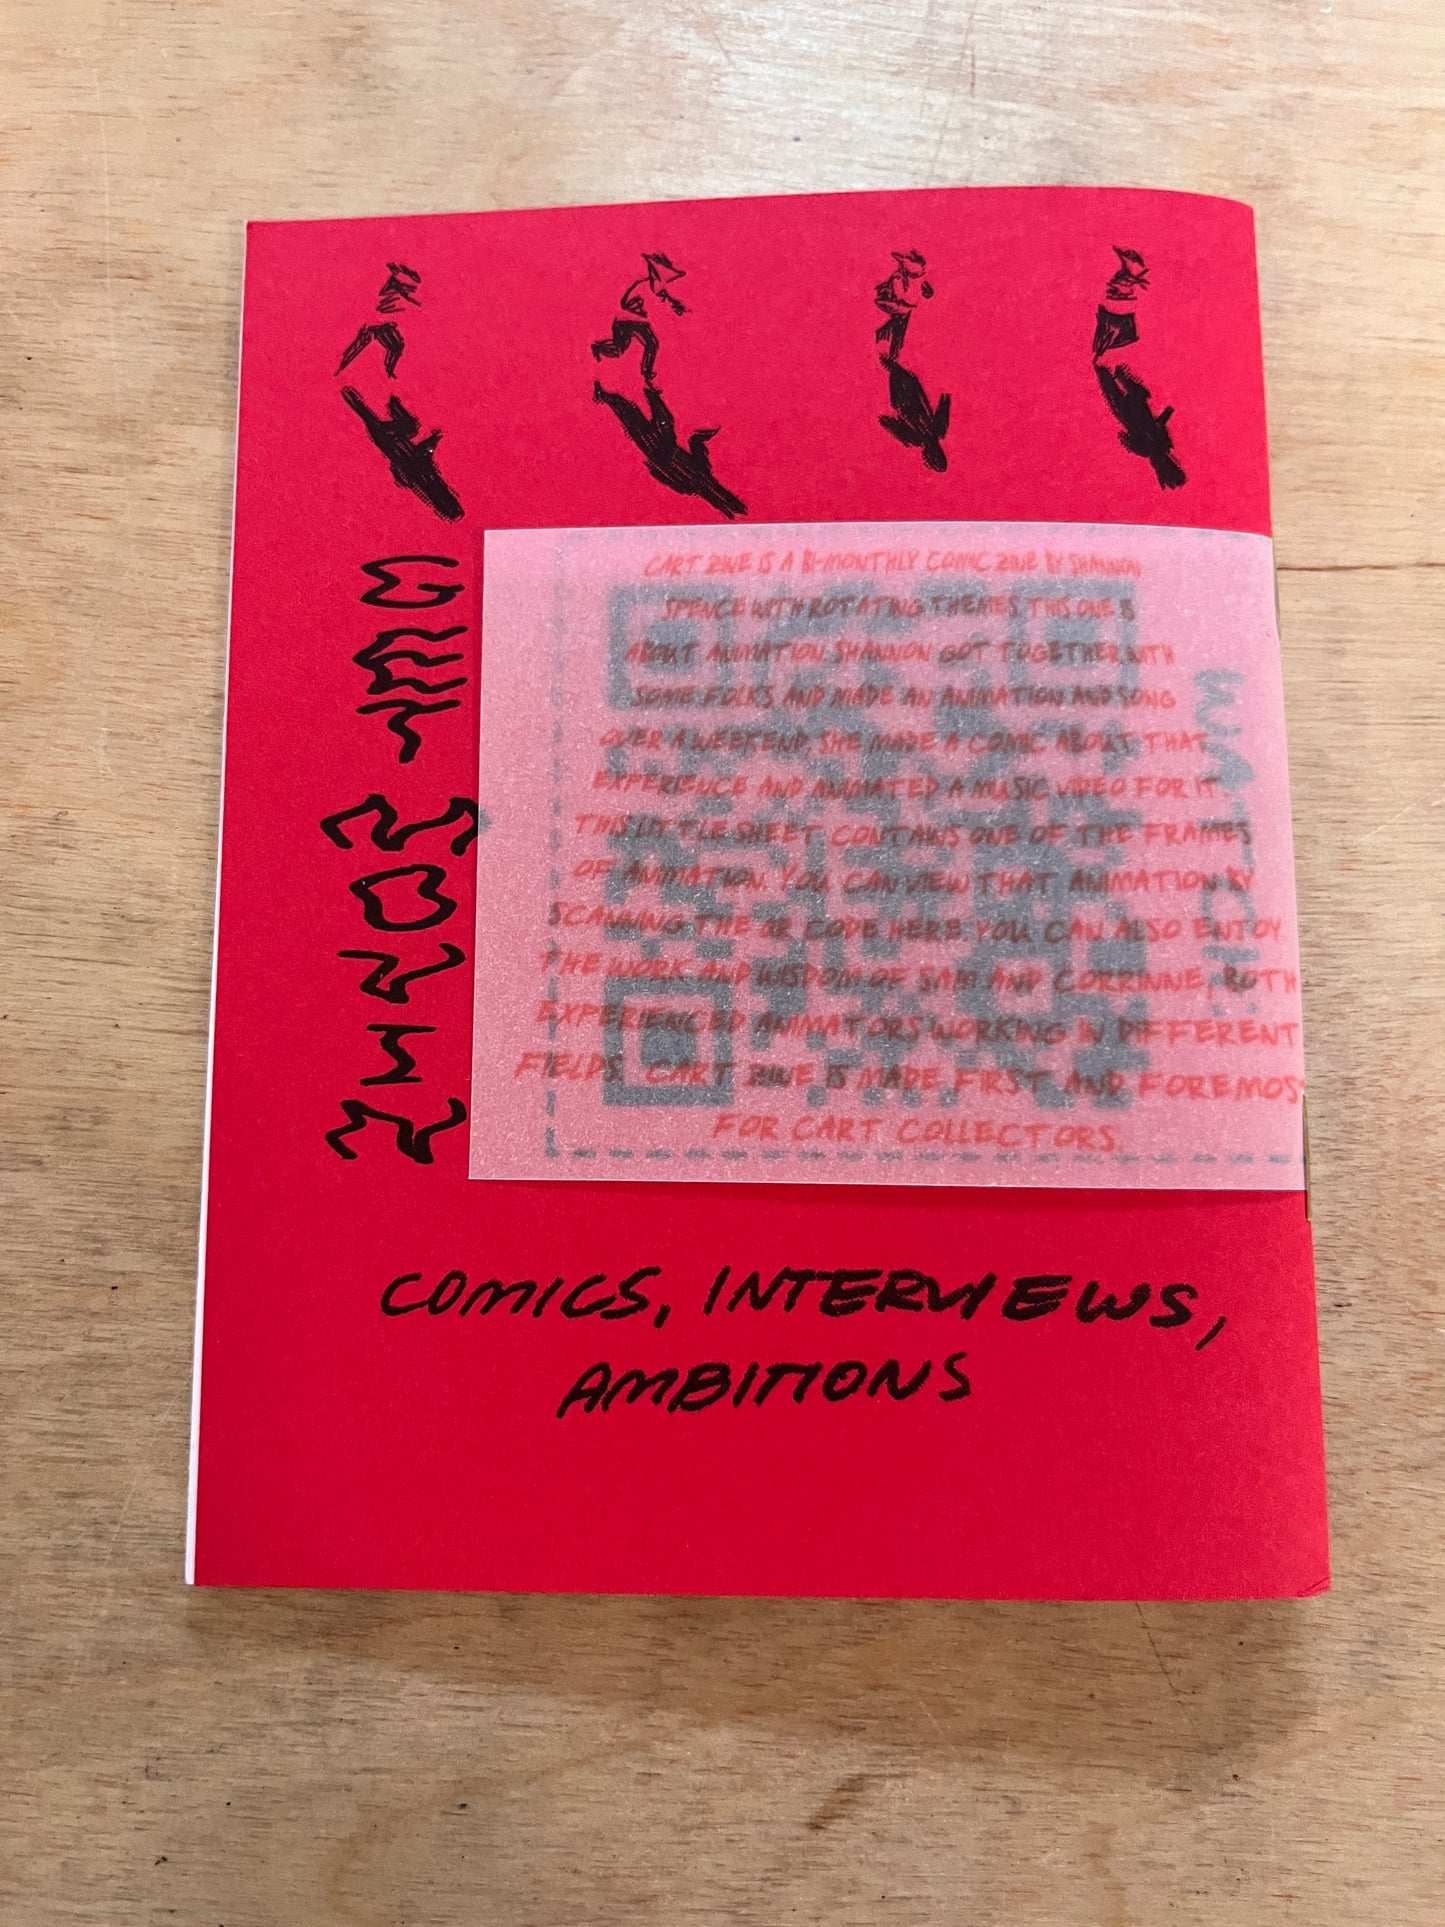 CART ZINE IS A BI-MONTHLY COMIC ZINE BY SHANNON
SPENCE WITH ROTATING THEMES. THIS ONE IS
ABOUT ANIMATION. SHANNON GOT TOGETHER WITH
SOME FOLKS AND MADE AN ANIMATION AND SONG
OVER A WEEKEND, SHE MADE A COMIC ABOUT THAT
EXPERIENCE AND ANIMATED A MUSIC VIDEO FOR IT.
THIS LITTLE SHEET CONTAINS ONE OF THE FRAMES
OF ANIMATION. YOU CAN VIEW THAT ANIMATION BY
SCANNING THE QR CODE HERE. YOU CAN ALSO ENJOY
THE WORK AND WISDOM OF SAM AND CORRINNE, BOTH
EXPERIENCED ANIMATORS WORKING IN DIFFERENT
FIELDS. CART ZINE IS MADE FIRST AND FOREMOST
FOR CART COLLECTORS.
COMICS, INTERVIEWS,
AMBITIONS